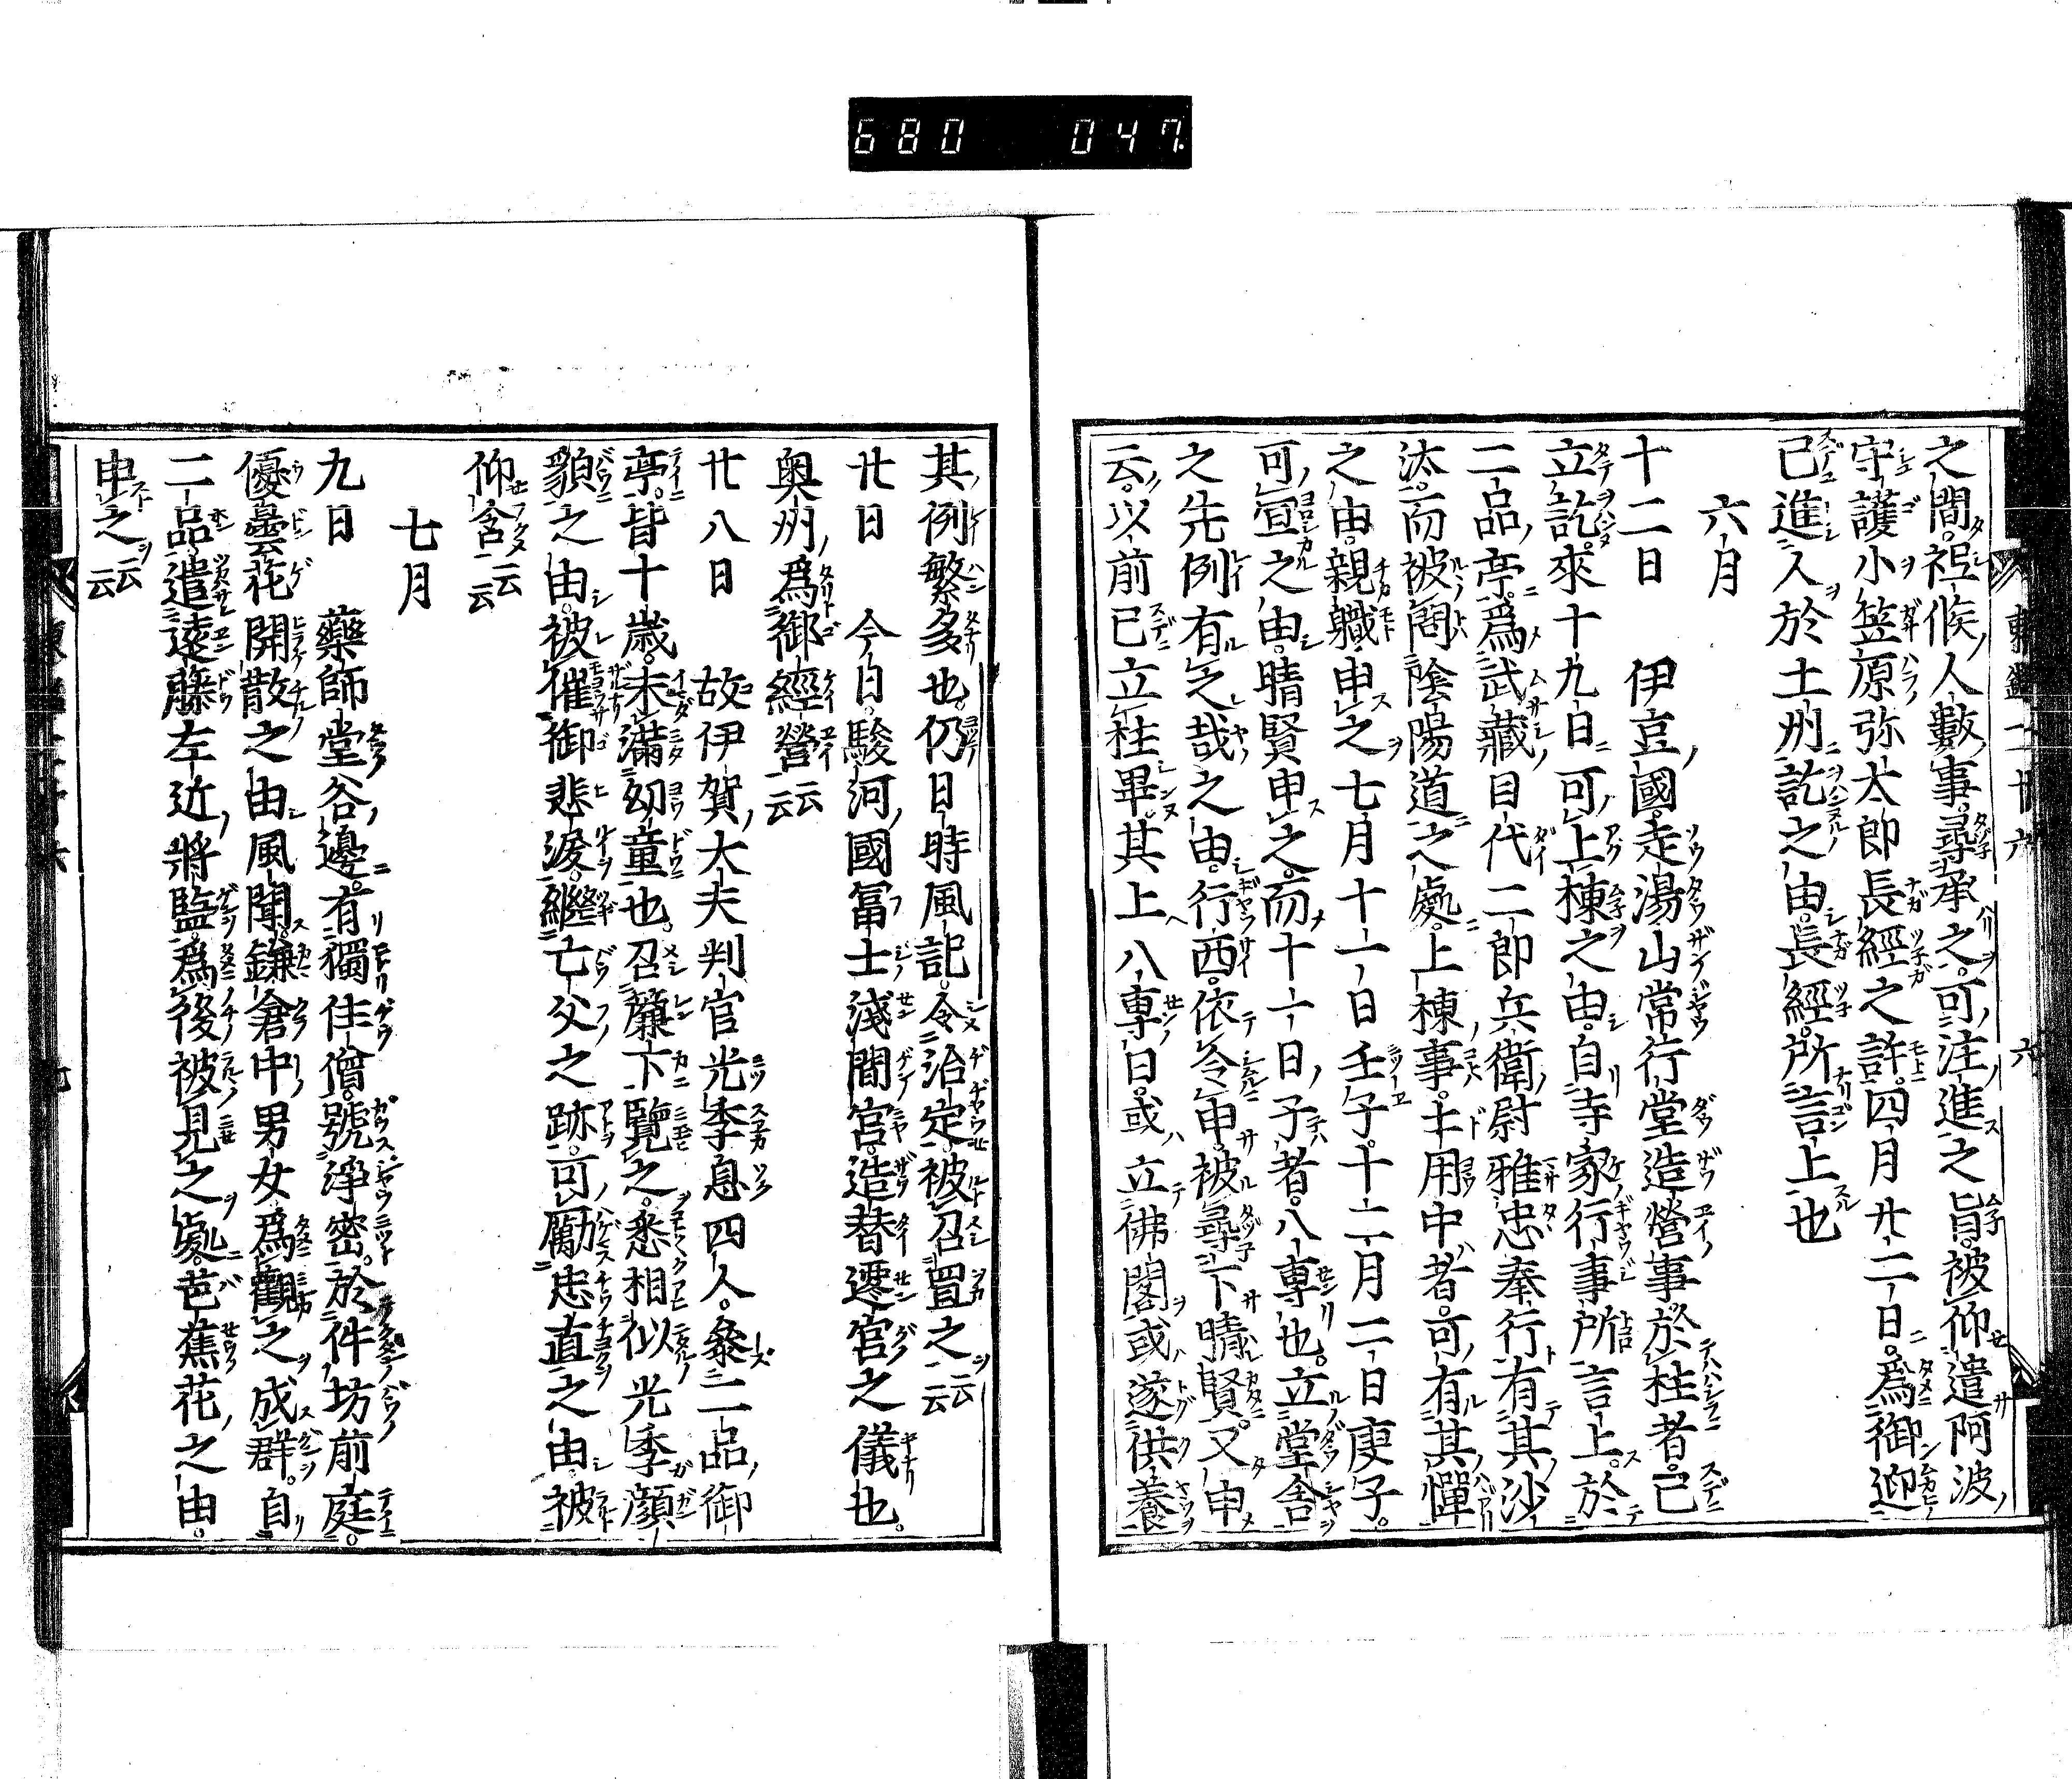 680 047
之間祗候人數事尋承之可注進之旨被仰遣阿波
守護小笠原弥太郎長經之許四月廿二日爲御迎
已進人於土州訖之由長經所言上也
六月
十二日 伊豆國走湯山常行堂造營事於柱者已
立訖來十九日可上棟之由自寺家行事所言上於
二品亭爲武藏目代二郎兵衛尉雅忠奉行有其沙
汰而被閣陰陽道之處上棟事土用中者可有其憚
之由親職申之七月十一日壬子十二月二日庚子
可宣之由晴賢申之而十一日子者八專也立堂舎
之先例有之哉之由行西依令申被尋下晴賢又申
云以前已立柱畢其上八專日或立佛閣或遂供養
其例繁多也仍日時風記令治定被召置之云云
廿日 今日駿河國冨士淺間宮造替遷宮之儀也
奥州爲御經營云云
廿八日 故伊賀大夫判官光季息四人參二品御
亭皆十歳未滿幼童也召簾下覽之悉相似光季顔
貌之由被催御悲涙繼亡父之跡可勵忠直之由被
仰含云云
七月
九日 藥師堂谷邊有獨住僧號淨密於件坊前庭
優曇花開散之由風聞鎌倉中男女爲觀之成群自
二品遣遠藤左近將監爲後被見之處芭蕉花之由
申之云云